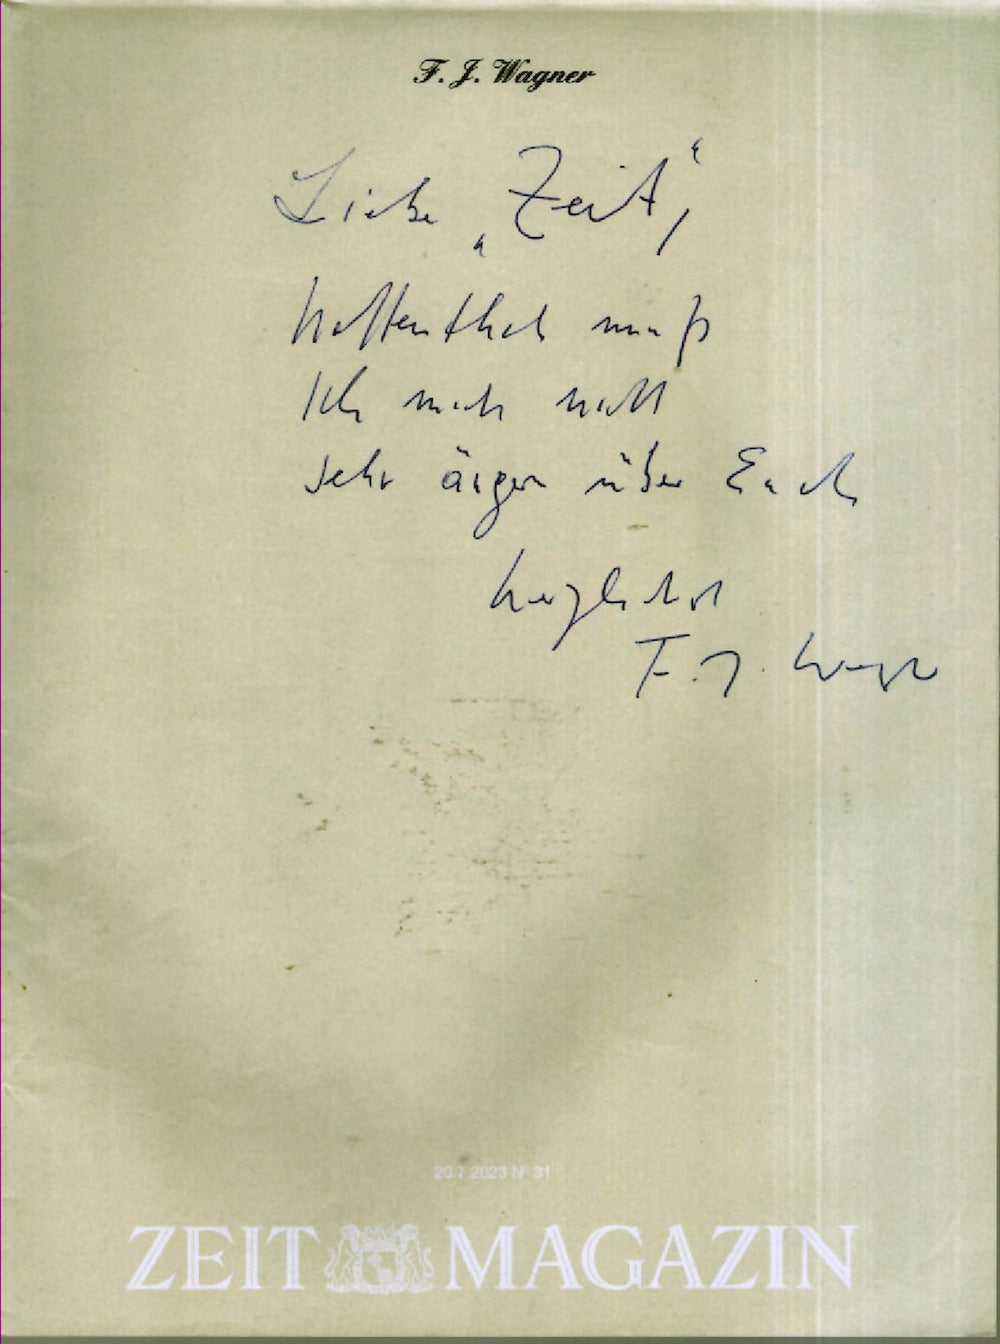 F. J. Wagner
Liebe „Zeit“,
hoffentlich muß
ich mich nicht
sehr ärgern über Euch
herzlichst
F. J. Wagner
20.7.2023 Nº 31
ZEIT MAGAZIN